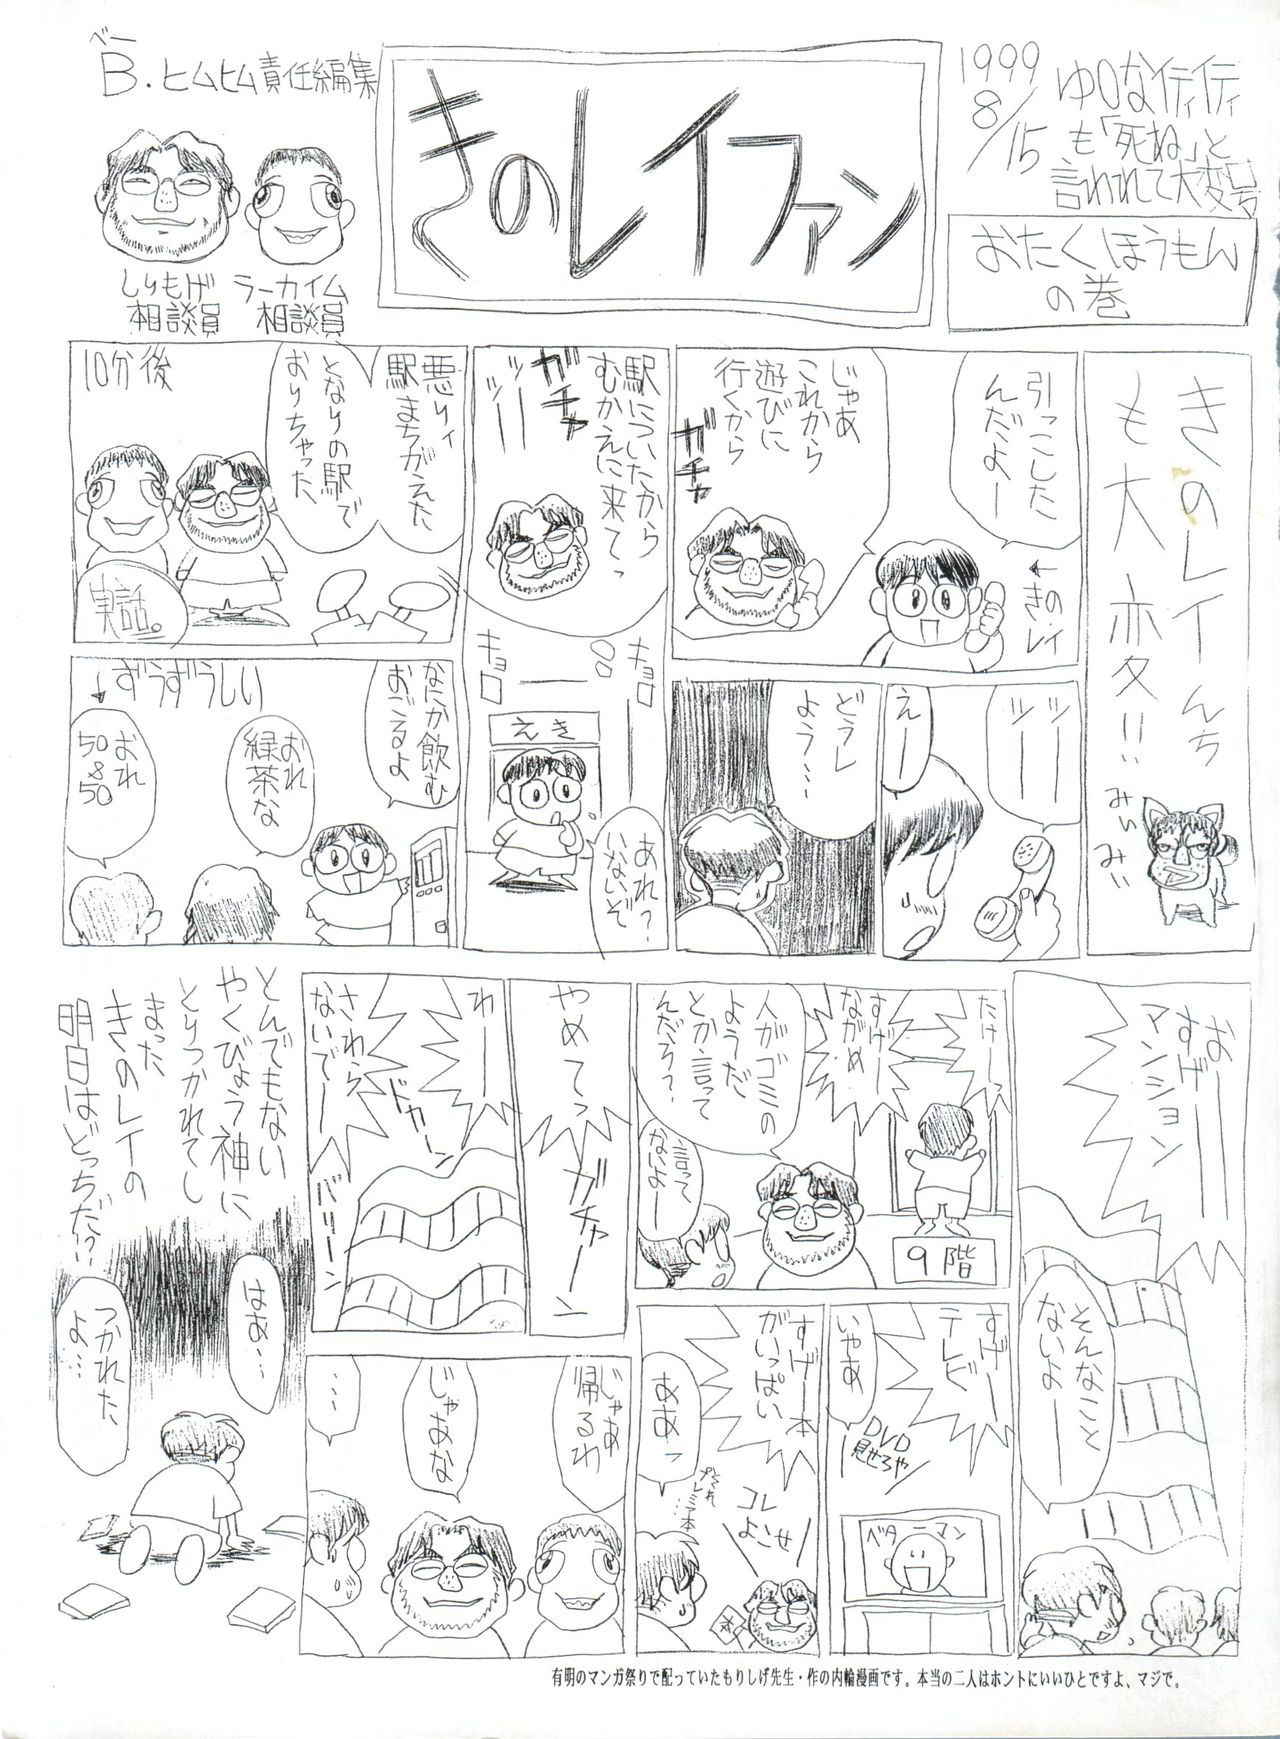 ベー
B.ヒムヒム責任編集
しりもげ
相談員
ラーカイム
相談員
きのレイファン
1999
8/15
も「死ね」と
言われて大変号
おたくほうもん
の巻
きのレイんち
も大変!!
みぃ
みぃ
引っこした
んだよー
←きのレイ
じゃあ
これから
遊びに
行くから
ガチャ
ツーー
ツーー
えーー
どうし
よう…
駅についたから
むかえに来てっ
ガチャ
ガチャ
ツーー
ツーー
キョロ
キョロ
えき
あれ?
いないぞ
悪りィ
駅まちがえた
となりの駅で
おりちゃった
10分後
実話。
なにか飲む
おごるよ
おれ
緑茶な
おれ
50&50
↓ずうずうしい
おーー
すげーー
マンション
そんなこと
ないよー
たけーー
すげー
ながめ
人がゴミの
ようだ
とか言って
んだろ?
言って
ないよー
9階
すげー
テレビ
いやあ
DVD
見せろや
ベターマン
すげー本
がいっぱい
ああっ
それ
プレミア本…
コレ
よこせ
やめてっ
ガチャーン
わーー
さわら
ないでー
ドカーン
バリーン
じゃあ
帰るわ
じゃあな
…
とんでもない
やくびょう神に
とりつかれてし
まった
きのレイの
明日はどっちだ!?
はあ…
つかれた
よ…
有明のマンガ祭りで配っていたもりしげ先生・作の内輪漫画です。本当の二人はホントにいいひとですよ、マジで。